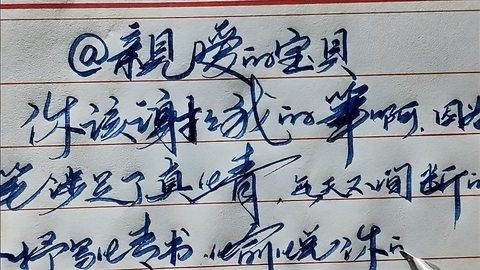 @親爱的宝贝
你该谢谢我的笔啊,因为
笔饱足了真情,每天不间断的
抒写情书,愉悦你的